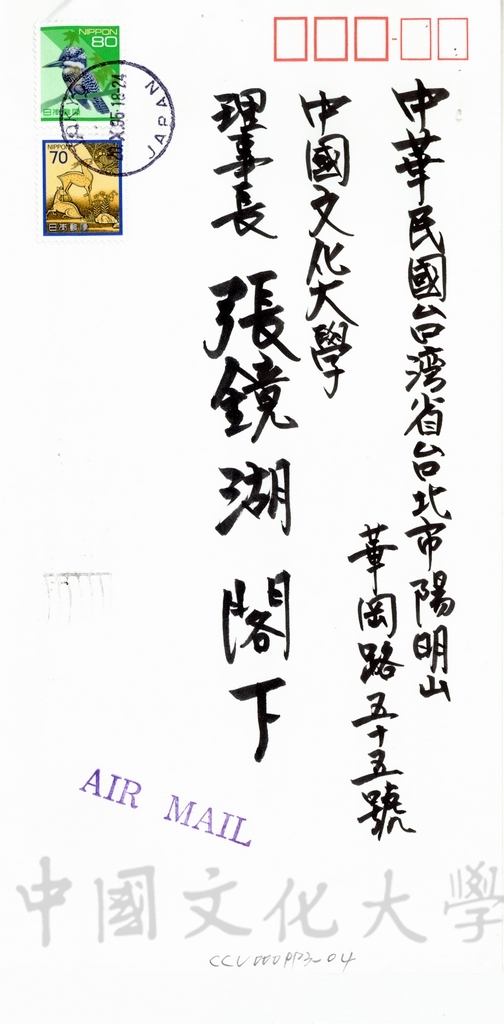 中華民國台湾省台北市陽明山
華岡路五十五號
中國文化大學
理事長 張鏡湖 閣下
NIPPON
80
日本郵便
NIPPON
70
日本郵便
JAPAN
AIR MAIL
中國文化大學